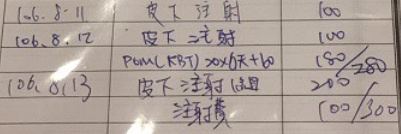 106.8.11 皮下注射 100
106.8.12 皮下注射 100
POM(KBT) 20x6天+60 180/280
106.8.13 皮下注射 200
注射費 100/300